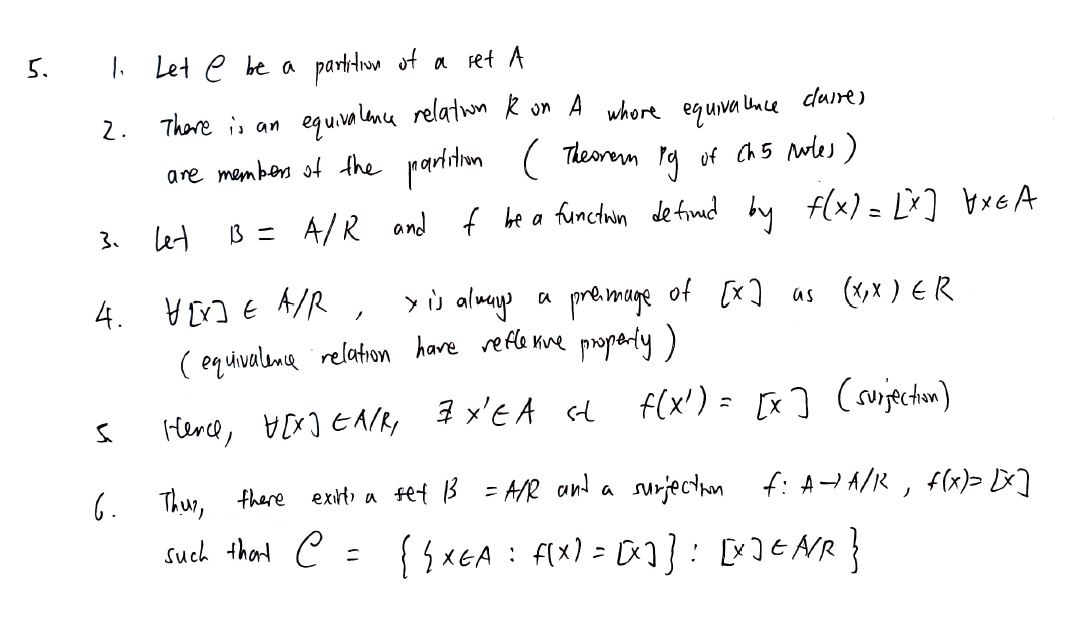 5. 1. Let C be a partition of a set A
2. There is an equivalence relation R on A whose equivalence classes
are members of the partition ( Theorem Pg of Ch 5 notes )
3. Let B = A/R and f be a function defined by f(x) = [x] ∀x∈A
4. ∀[x] ∈ A/R , x is always a preimage of [x] as (x,x) ∈ R
( equivalence relation have reflexive property )
5 Hence, ∀[x] ∈ A/R, ∃ x' ∈ A st f(x') = [x] (surjection)
6. Thus, there exists a set B = A/R and a surjection f: A → A/R , f(x) = [x]
such that C = { { x∈A : f(x) = [x] } : [x] ∈ A/R }